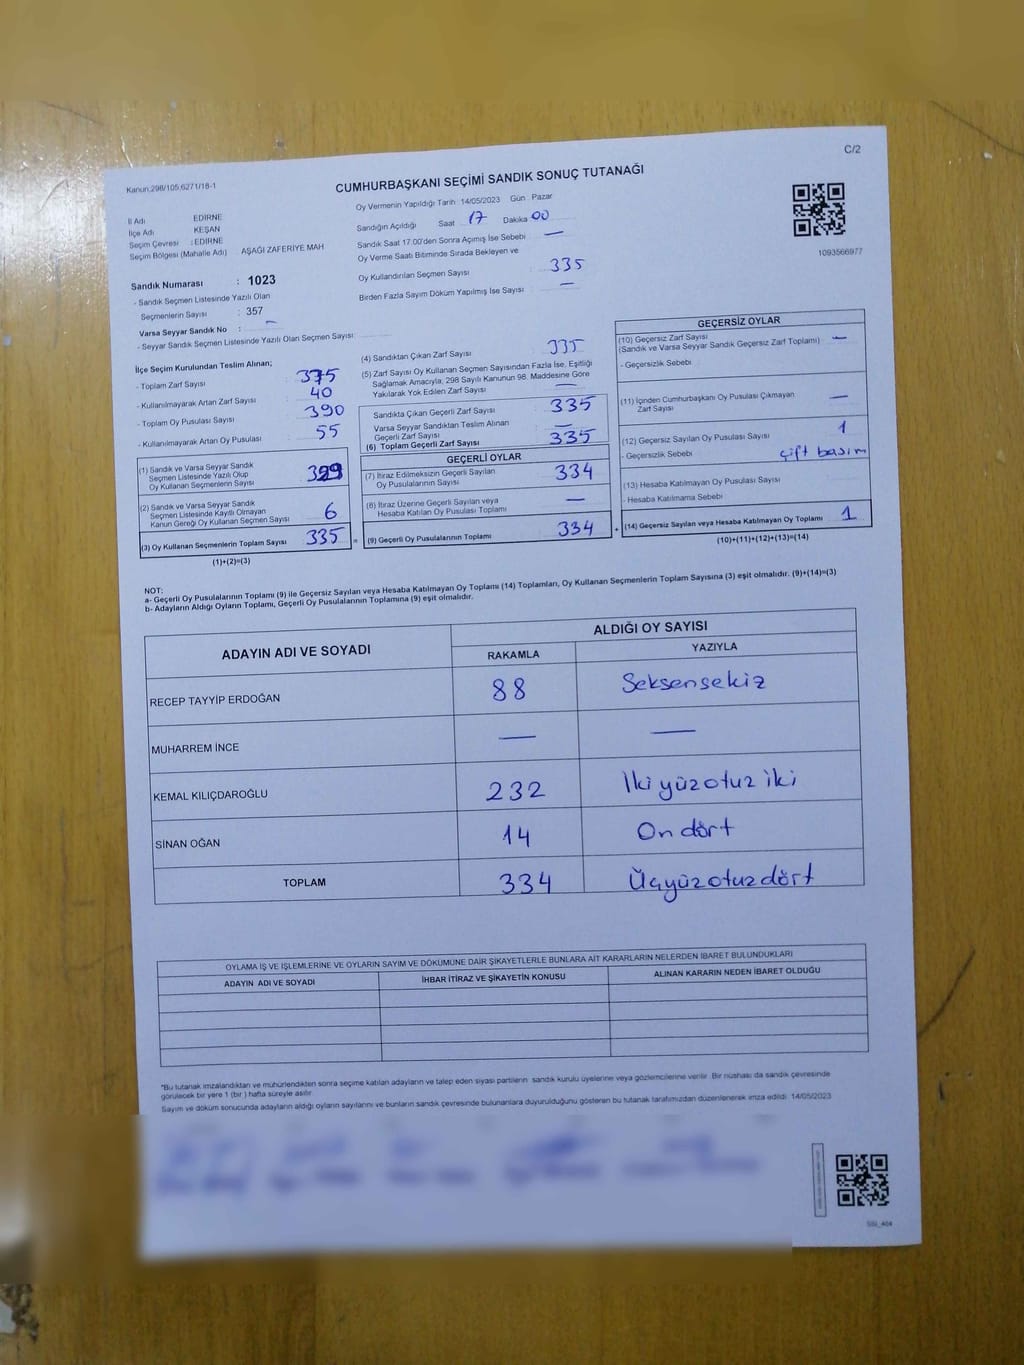 C/2
Kanun,298/105,6271/18-1
CUMHURBAŞKANI SEÇİMİ SANDIK SONUÇ TUTANAĞI
Oy Vermenin Yapıldığı Tarih 14/05/2023 Gün Pazar
İl Adı EDİRNE
İlçe Adı KEŞAN
Seçim Çevresi : EDİRNE
Seçim Bölgesi (Mahalle Adı) AŞAĞI ZAFERİYE MAH
Sandığın Açıldığı Saat 17 Dakika 00
Sandık Saat 17.00'den Sonra Açımış İse Sebebi —
Oy Verme Saati Bitiminde Sırada Bekleyen ve
Oy Kullandırılan Seçmen Sayısı : 335
Birden Fazla Sayım Döküm Yapılmış İse Sayısı : —
1093566977
Sandık Numarası : 1023
- Sandık Seçmen Listesinde Yazılı Olan
Seçmenlerin Sayısı : 357
Varsa Seyyar Sandık No : —
- Seyyar Sandık Seçmen Listesinde Yazılı Olan Seçmen Sayısı:
İlçe Seçim Kurulundan Teslim Alınan;
- Toplam Zarf Sayısı : 375
- Kullanılmayarak Artan Zarf Sayısı : 40
- Toplam Oy Pusulası Sayısı : 390
- Kullanılmayarak Artan Oy Pusulası : 55
(1) Sandık ve Varsa Seyyar Sandık
Seçmen Listesinde Yazılı Olup
Oy Kullanan Seçmenlerin Sayısı 329
(2) Sandık ve Varsa Seyyar Sandık
Seçmen Listesinde Kayıtlı Olmayan
Kanun Gereği Oy Kullanan Seçmen Sayısı 6
(3) Oy Kullanan Seçmenlerin Toplam Sayısı 335 =
(1)+(2)=(3)
(4) Sandıktan Çıkan Zarf Sayısı : 335
(5) Zarf Sayısı Oy Kullanan Seçmen Sayısından Fazla İse, Eşitliği
Sağlamak Amacıyla, 298 Sayılı Kanunun 98. Maddesine Göre
Yakılarak Yok Edilen Zarf Sayısı : —
Sandıkta Çıkan Geçerli Zarf Sayısı 335
Varsa Seyyar Sandıktan Teslim Alınan
Geçerli Zarf Sayısı —
(6) Toplam Geçerli Zarf Sayısı 335
GEÇERLİ OYLAR
(7) İtiraz Edilmeksizin Geçerli Sayılan
Oy Pusulalarının Sayısı 334
(8) İtiraz Üzerine Geçerli Sayılan veya
Hesaba Katılan Oy Pusulası Toplamı —
(9) Geçerli Oy Pusulalarının Toplamı 334 +
GEÇERSİZ OYLAR
(10) Geçersiz Zarf Sayısı
(Sandık ve Varsa Seyyar Sandık Geçersiz Zarf Toplamı) —
- Geçersizlik Sebebi
(11) İçinden Cumhurbaşkanı Oy Pusulası Çıkmayan
Zarf Sayısı —
(12) Geçersiz Sayılan Oy Pusulası Sayısı 1
- Geçersizlik Sebebi çift basım
(13) Hesaba Katılmayan Oy Pusulası Sayısı
- Hesaba Katılmama Sebebi
(14) Geçersiz Sayılan veya Hesaba Katılmayan Oy Toplamı 1
(10)+(11)+(12)+(13)=(14)
NOT:
a- Geçerli Oy Pusulalarının Toplamı (9) ile Geçersiz Sayılan veya Hesaba Katılmayan Oy Toplamı (14) Toplamları, Oy Kullanan Seçmenlerin Toplam Sayısına (3) eşit olmalıdır. (9)+(14)=(3)
b- Adayların Aldığı Oyların Toplamı, Geçerli Oy Pusulalarının Toplamına (9) eşit olmalıdır.
ADAYIN ADI VE SOYADI ALDIĞI OY SAYISI
RAKAMLA YAZIYLA
RECEP TAYYİP ERDOĞAN 88 Seksensekiz
MUHARREM İNCE — —
KEMAL KILIÇDAROĞLU 232 İki yüz otuz iki
SİNAN OĞAN 14 On dört
TOPLAM 334 Üçyüzotuzdört
OYLAMA İŞ VE İŞLEMLERİNE VE OYLARIN SAYIM VE DÖKÜMÜNE DAİR ŞİKAYETLERLE BUNLARA AİT KARARLARIN NELERDEN İBARET BULUNDUKLARI
ADAYIN ADI VE SOYADI İHBAR İTİRAZ VE ŞİKAYETİN KONUSU ALINAN KARARIN NEDEN İBARET OLDUĞU
*Bu tutanak imzalandıktan ve mühürlendikten sonra seçime katılan adayların ve talep eden siyasi partilerin sandık kurulu üyelerine veya gözlemcilerine verilir. Bir nüshası da sandık çevresinde
görülecek bir yere 1 (bir ) hafta süreyle asılır.
Sayım ve döküm sonucunda adayların aldığı oyların sayılarını ve bunların sandık çevresinde bulunanlara duyurulduğunu gösteren bu tutanak tarafımızdan düzenlenerek imza edildi. 14/05/2023